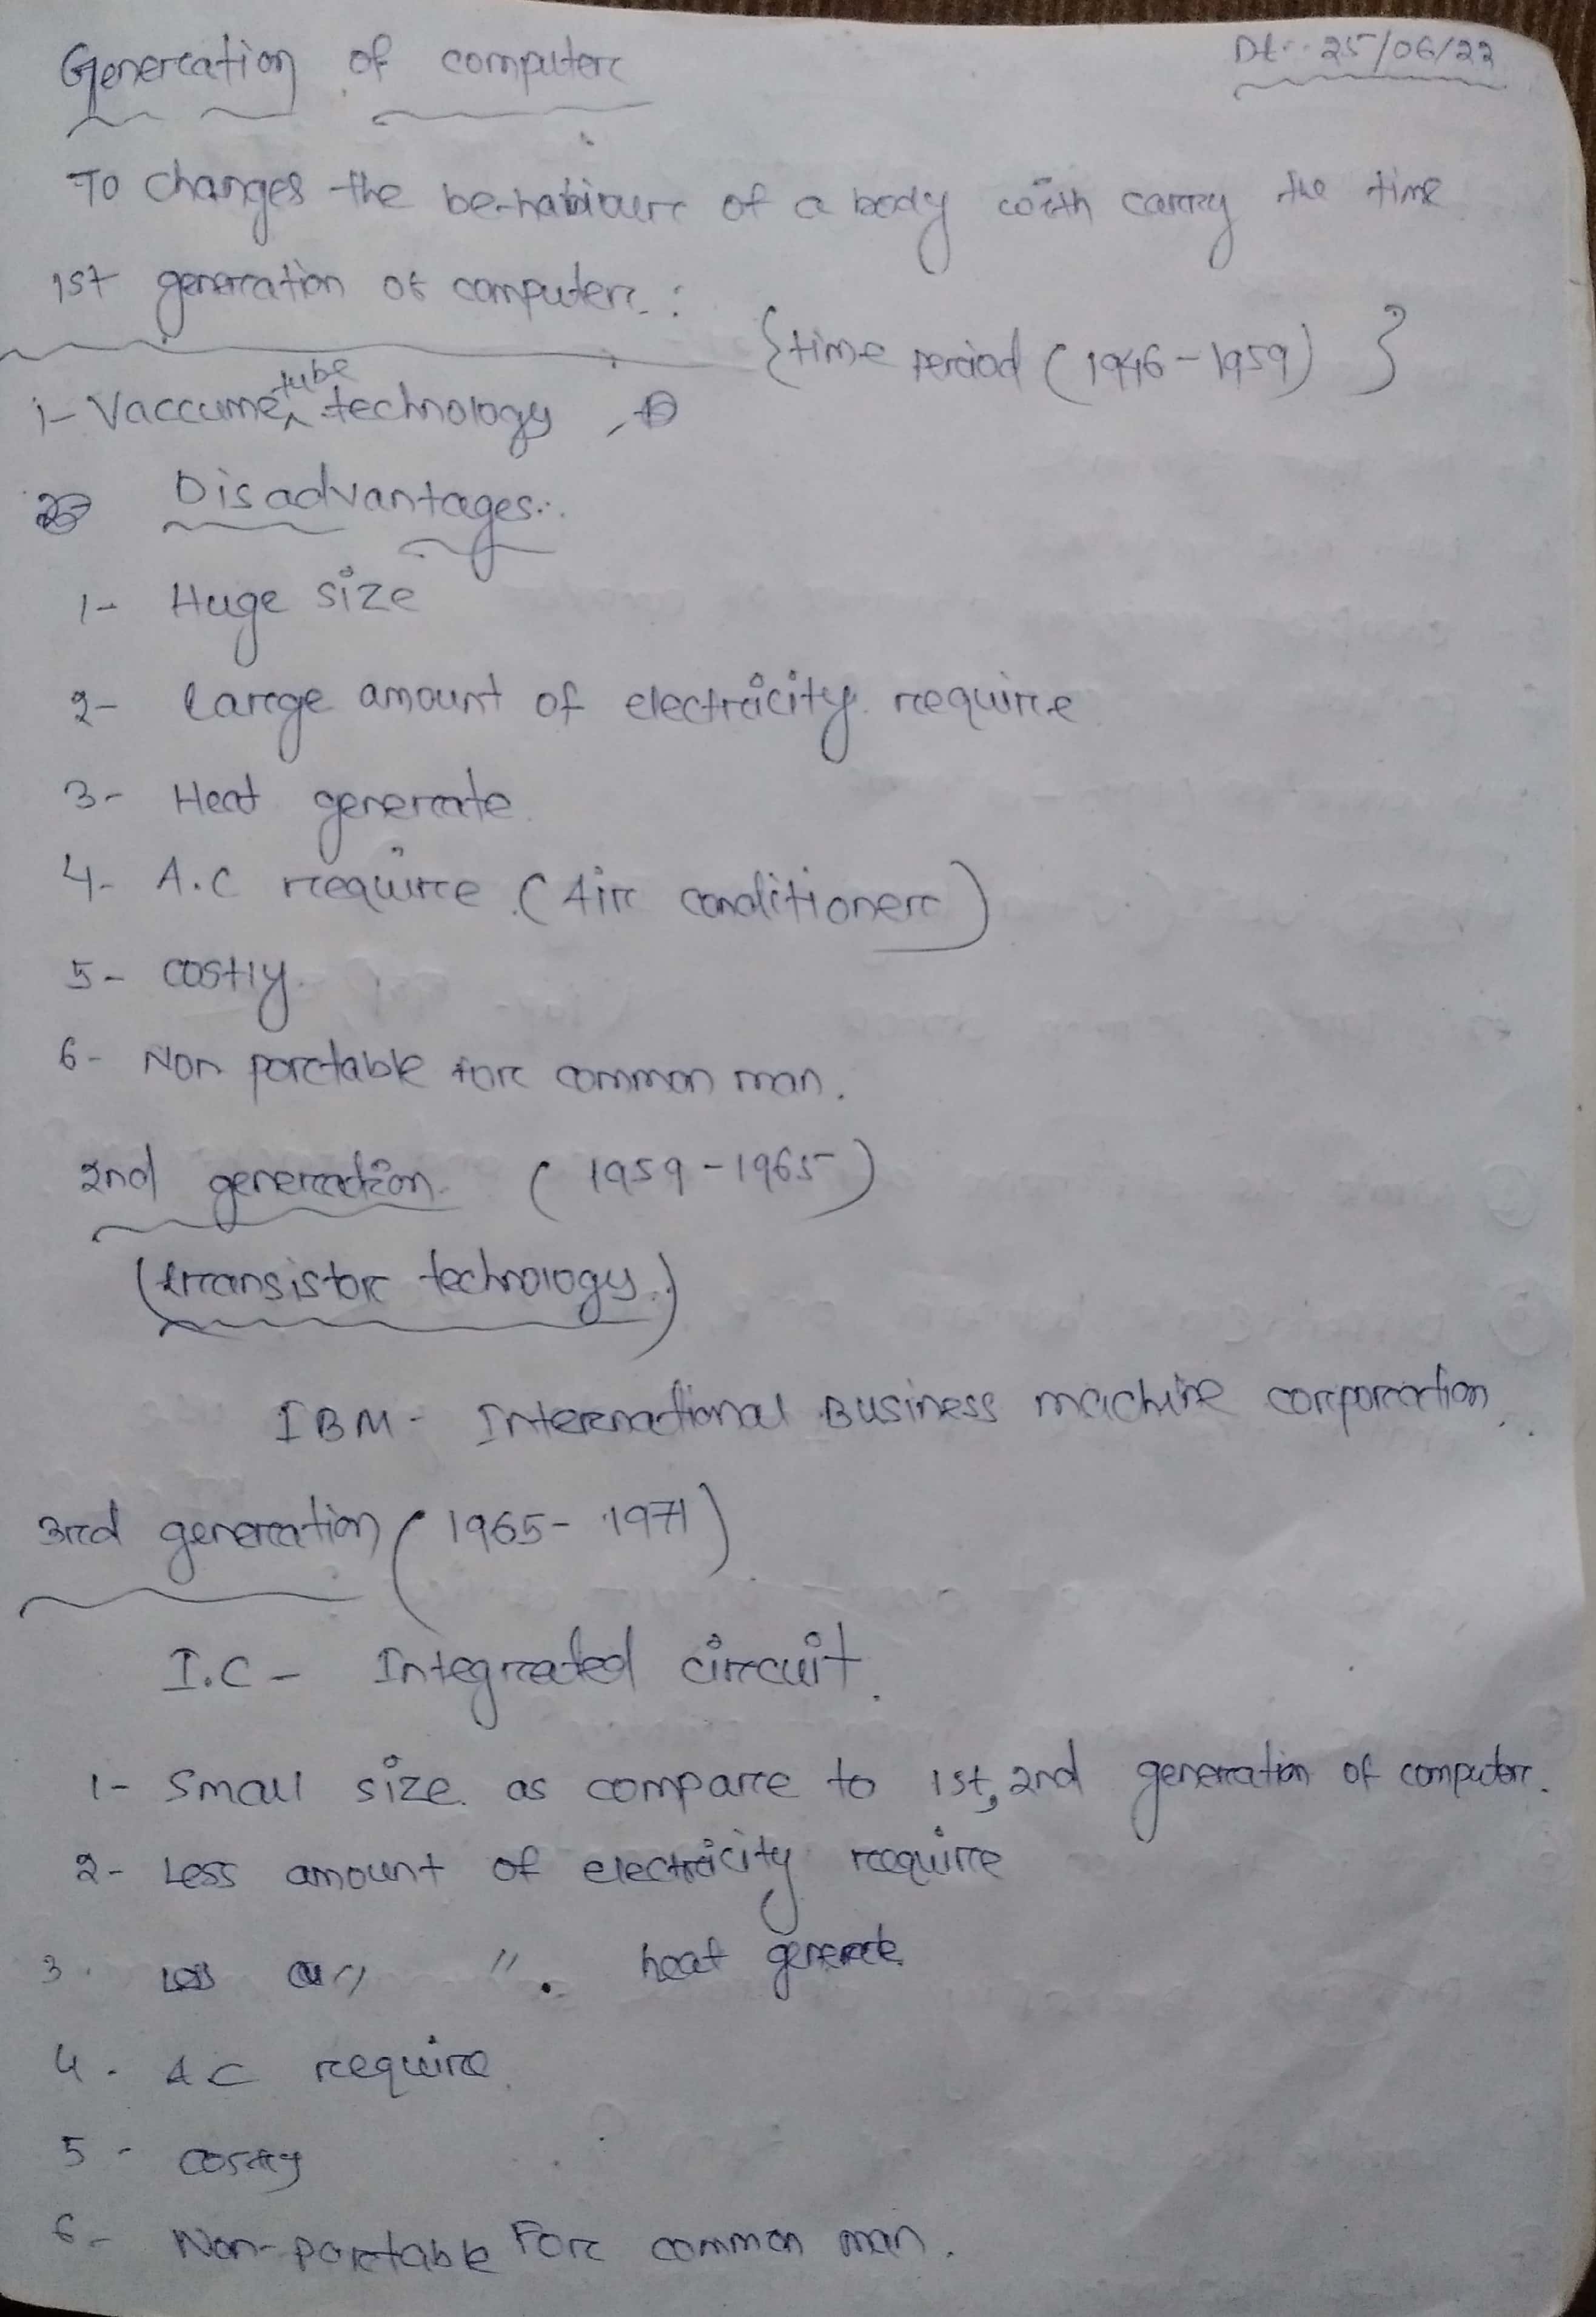 Generation of computer
Dt:- 25/06/22
To changes the be-habiour of a body with carry the time
1st generation of computer :
{time period (1946-1959) }
i- Vaccume tube technology
Disadvantages:.
1- Huge size
2- Large amount of electricity require
3- Heat generate
4- A.C require (Air conditioner)
5- costly
6- Non portable for common man.
2nd generation (1959-1965)
(transistor technology.)
IBM- International Business machine corporation.
3rd generation (1965-1971)
I.C- Integrated circuit.
1- Small size as compare to 1st, 2nd generation of computer.
2- Less amount of electricity require
3. Less " " heat generate
4. AC require
5- costly
6- Non-portable For common man.